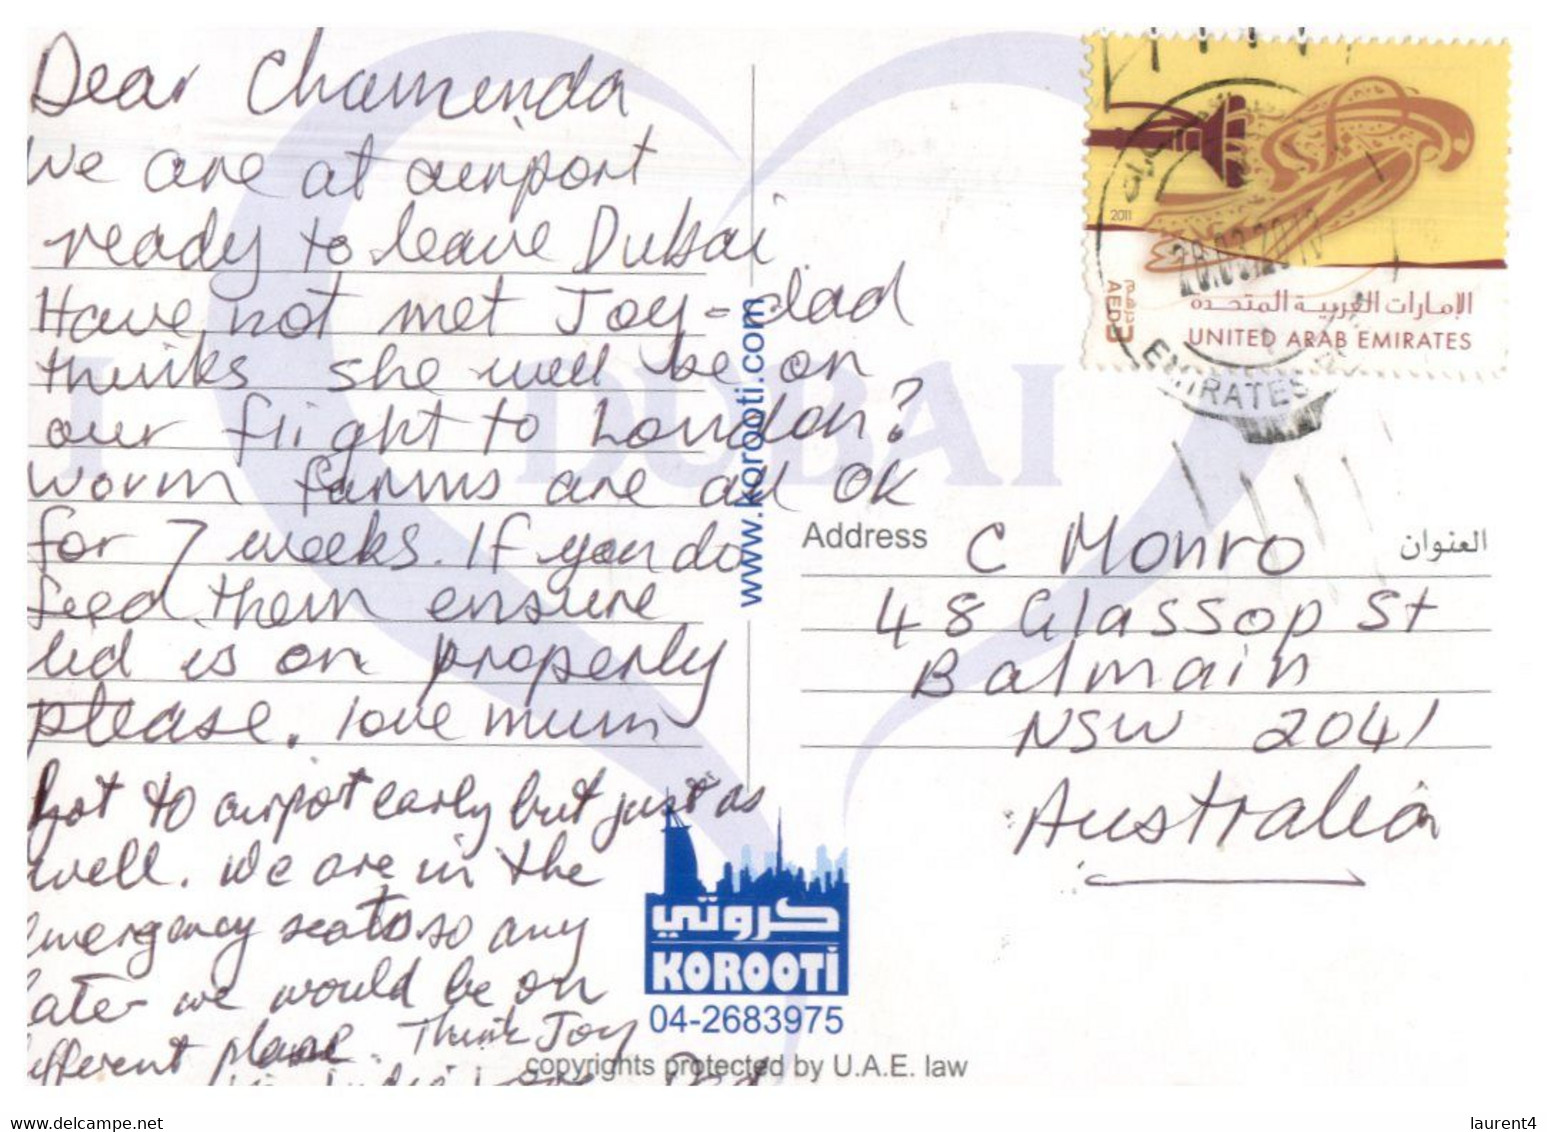 Dear Chamenda
we are at airport
ready to leave Dubai
Have not met Joy - dad
thinks she will be on
our flight to London?
Worm farms are all OK
for 7 weeks. If you do
feed them ensure
lid is on properly
please. love mum
Got to airport early but just as
well. We are in the
emergency seats so any
later we would be on
different plane. Think Joy
I DUBAI
www.korooti.com
كروتي
KOROOTi
04-2683975
copyrights protected by U.A.E. law
2011
AED 3 درهم
الإمارات العربية المتحدة
UNITED ARAB EMIRATES
EMIRATES
Address
العنوان
C Monro
48 Glassop St
Balmain
NSW 2041
Australia
www.delcampe.net
laurent4